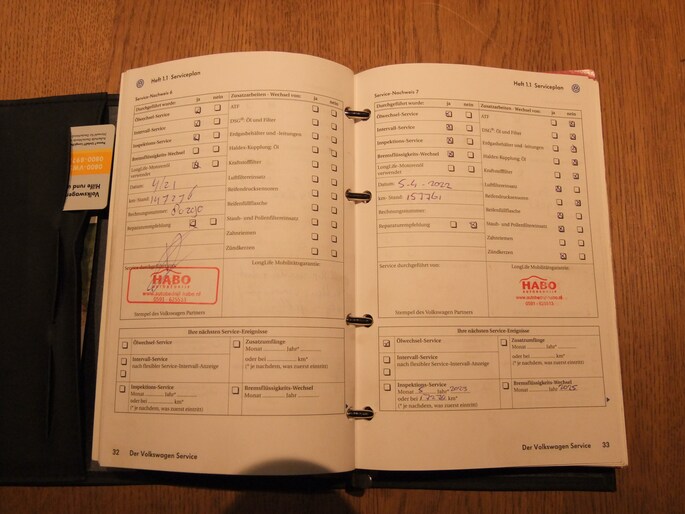 Heft 1.1 Serviceplan
Service-Nachweis 6
Durchgeführt wurde: ja nein
Ölwechsel-Service
Intervall-Service
Inspektions-Service
Bremsflüssigkeits-Wechsel
LongLife-Motoröl
verwendet
Datum: 4/21
km-Stand:
Rechnungsnummer:
Reparaturempfehlung
Service durchgeführt
HABO
www.autobedrijf-habo.nl
Stempel des Volkswagen Partners
Zusatzarbeiten - Wechsel von: ja nein
ATF
DSG®-Öl und Filter
Erdgasbehälter und -leitungen
Haldex-Kupplung, Öl
Kraftstofffilter
Luftfiltereinsatz
Reifendrucksensoren
Reifenfüllflasche
Staub- und Pollenfiltereinsatz
Zahnriemen
Zündkerzen
LongLife Mobilitätsgarantie
Ihre nächsten Service-Ereignisse
Ölwechsel-Service
Intervall-Service
nach flexibler Service-Intervall-Anzeige
Inspektions-Service
Monat ........ Jahr*........
oder bei ............ km*
(* je nachdem, was zuerst eintritt)
Zusatzumfänge
Monat ........ Jahr*........
oder bei ............ km*
(* je nachdem, was zuerst eintritt)
Bremsflüssigkeits-Wechsel
Monat ........ Jahr ........
32 Der Volkswagen Service
Heft 1.1 Serviceplan
Service-Nachweis 7
Durchgeführt wurde: ja nein
Ölwechsel-Service
Intervall-Service
Inspektions-Service
Bremsflüssigkeits-Wechsel
LongLife-Motoröl
verwendet
Datum: 5-4-2022
km-Stand: 153761
Rechnungsnummer:
Reparaturempfehlung
Service durchgeführt von:
Stempel des Volkswagen Partners
Zusatzarbeiten - Wechsel von: ja nein
ATF
DSG®-Öl und Filter
Erdgasbehälter und -leitungen
Haldex-Kupplung, Öl
Kraftstofffilter
Luftfiltereinsatz
Reifendrucksensoren
Reifenfüllflasche
Staub- und Pollenfiltereinsatz
Zahnriemen
Zündkerzen
LongLife Mobilitätsgarantie
HABO
Ihre nächsten Service-Ereignisse
Ölwechsel-Service
Intervall-Service
nach flexibler Service-Intervall-Anzeige
Inspektions-Service
Monat 5 Jahr* 2023
oder bei km*
(* je nachdem, was zuerst eintritt)
Zusatzumfänge
Monat ........ Jahr*........
oder bei ............ km*
(* je nachdem, was zuerst eintritt)
Bremsflüssigkeits-Wechsel
Monat ........ Jahr 2025
Der Volkswagen Service 33